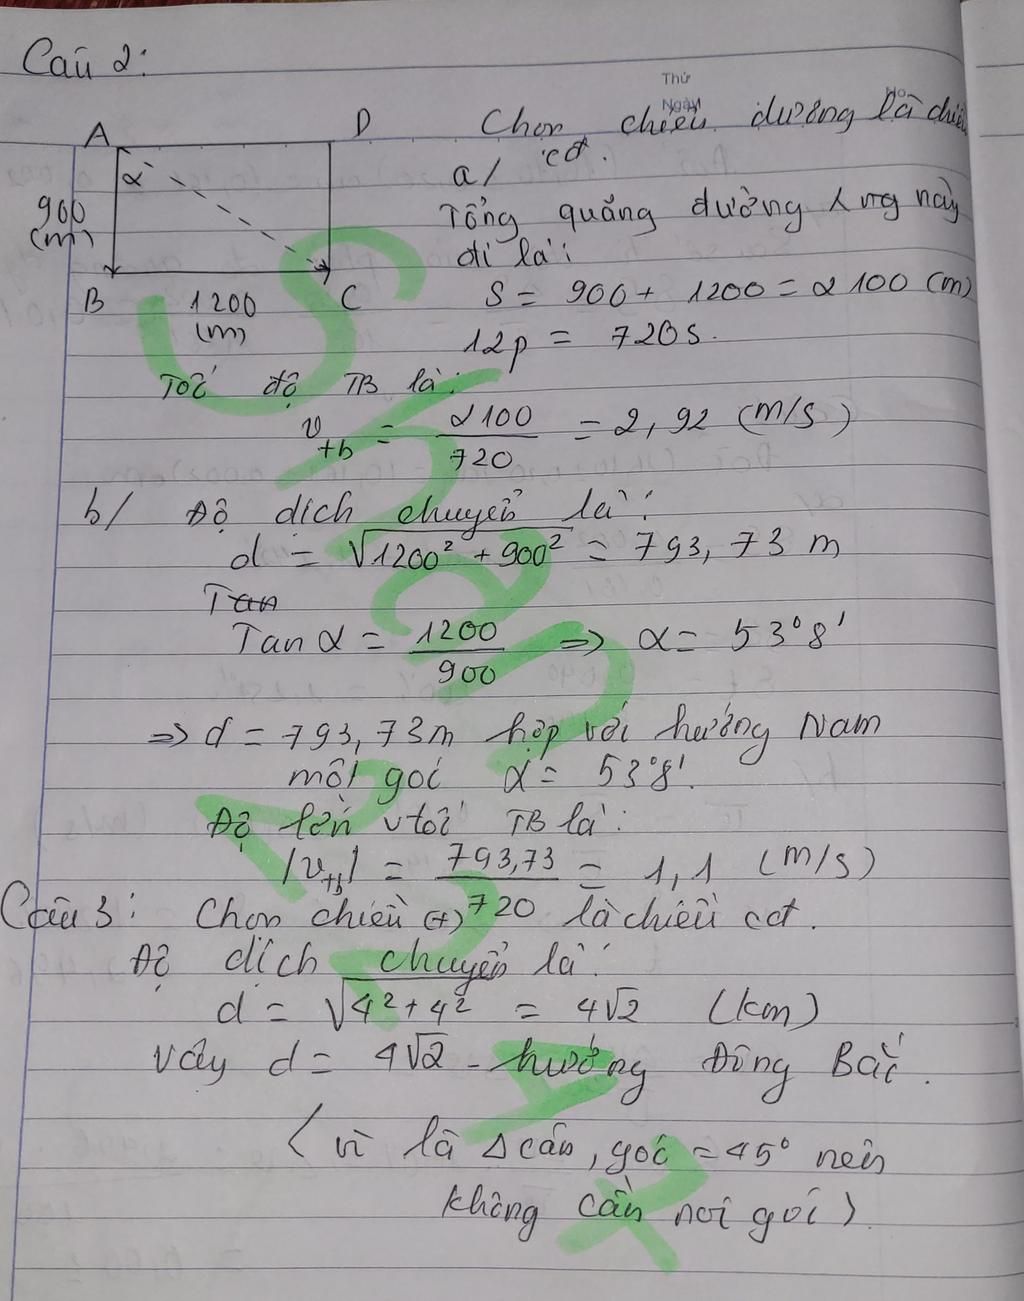 Câu 2:
Thứ
Ngày
No
Chọn chiều dương là chiều
cđ.
A
D
α
a/
900
(m)
Tổng quãng đường 1 ng này
đi là:
B
1200
(m)
C
S = 900 + 1200 = 2100 (m)
12p = 720s.
Tốc độ TB là:
v_tb = 2100/720 = 2,92 (m/s)
b/ Độ dịch chuyển là:
d = √1200² + 900² = 793,73 m
Tan
Tan α = 1200/900 => α = 53°8'
=> d = 793,73m hợp với hướng Nam
một góc α = 53°8'.
Độ lớn v tốc TB là:
|v_tb| = 793,73/720 = 1,1 (m/s)
Câu 3: Chọn chiều (+) là chiều cđ.
Độ dịch chuyển là:
d = √4² + 4² = 4√2 (km)
Vậy d = 4√2 - hướng Đông Bắc.
(vì là Δ cân, góc = 45° nên
không cần nói góc)
Shan
22
A7